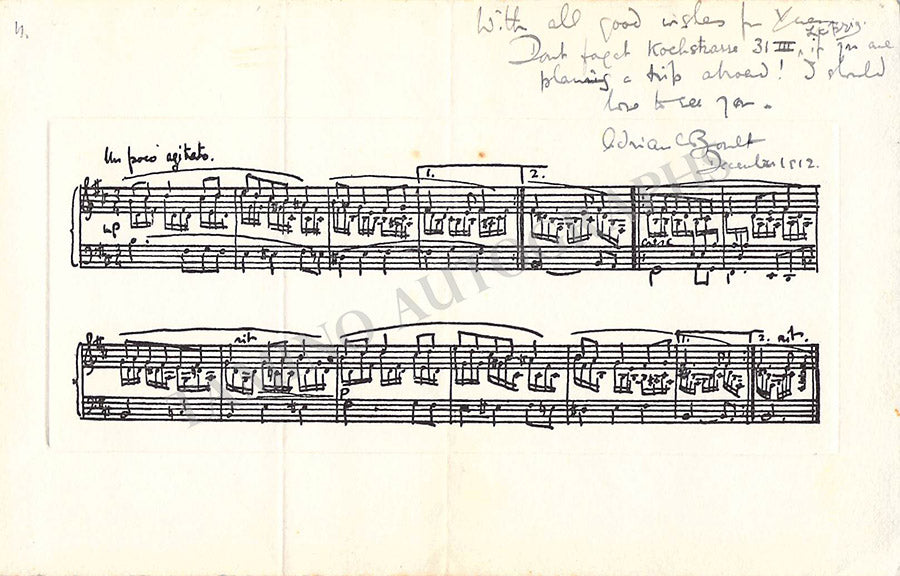 With all good wishes for Xmas
Leipzig.
Dont forget Kochstrasse 31 III, if you are
planning a trip abroad! I should
love to see you.
Adrian C Boult
December 1912.
Un poco agitato.
1. 2.
mp
rit
p
1. 2. rit.
TAMINO AUTOGRAPHS